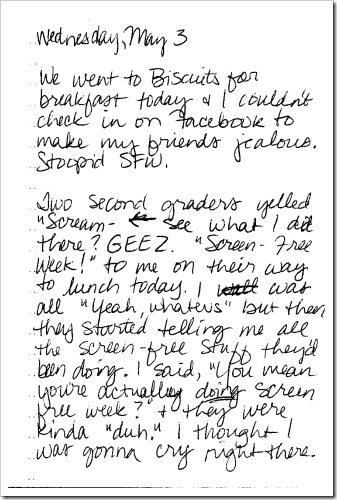 Wednesday, May 3
We went to Biscuits for
breakfast today & I couldn't
check in on Facebook to
make my friends jealous.
Stoopid SFW.
Two second graders yelled
"Scream- ← See what I did
there? GEEZ. "Screen-Free
Week!" to me on their way
to lunch today. I was
all "Yeah, whatevs" but then
they started telling me all
the screen-free stuff they'd
been doing. I said, "You mean
you're actually doing screen
free week?" & they were
kinda "duh." I thought I
was gonna cry right there.